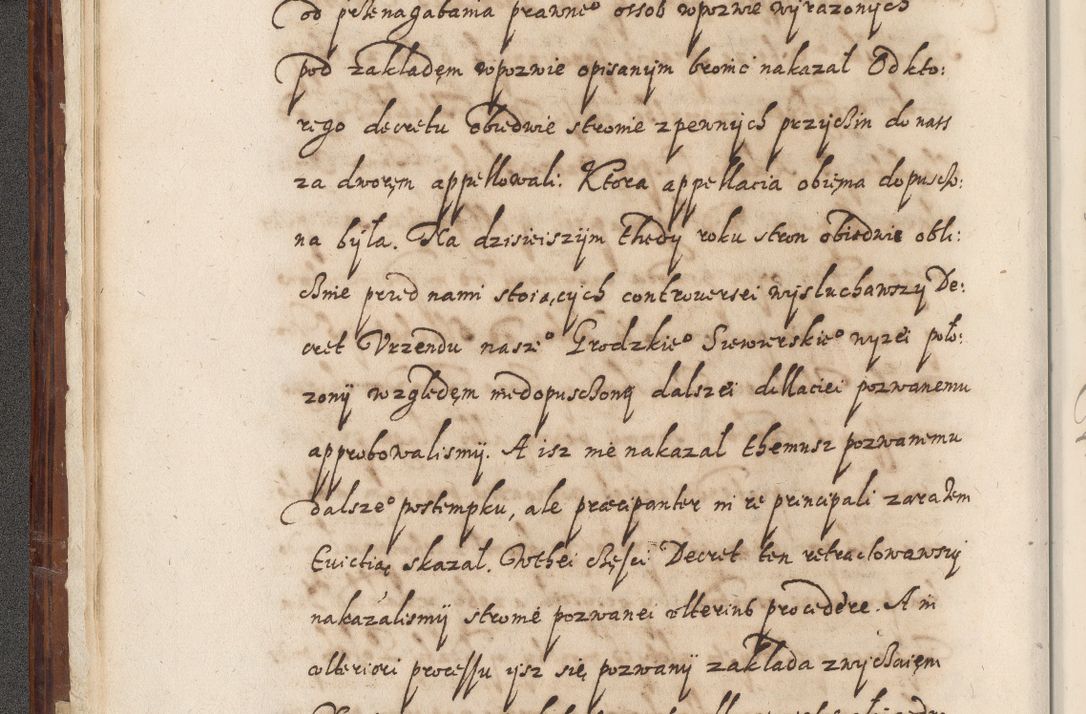 od przenagabania prawneo ossob wpozwie wyrazonych
pod zakladęm wpozwie opisanym bronic nakazał Odkto:
rego decretu obiedwie stronie zpewnych przyczin do nass
za dworęm appellowali: Ktora appellacia obiema dopuscżo:
na była. Na dzisieiszym thedy roku stron obiedwie obli:
cżnie przed nami stoiących controuersei wysłuchawszy De:
cret Vrzendu naszeo Grodzkieo Siewierskieo wyzei poło:
zony względęm niedopusczony dalszei dillaciei pozwanemu
approbowalismy. A isz nie nakazał themusz pozwanemu
dalszeo postempku, ale præcipanter in re principali zarazem
Euictią skazał. Wthei częsci Decret ten retractowawszy
nakazalismy stronie pozwanei vlterius procedere. A in
vlteriori processu ysz się pozwany zakłada zwyczaięm